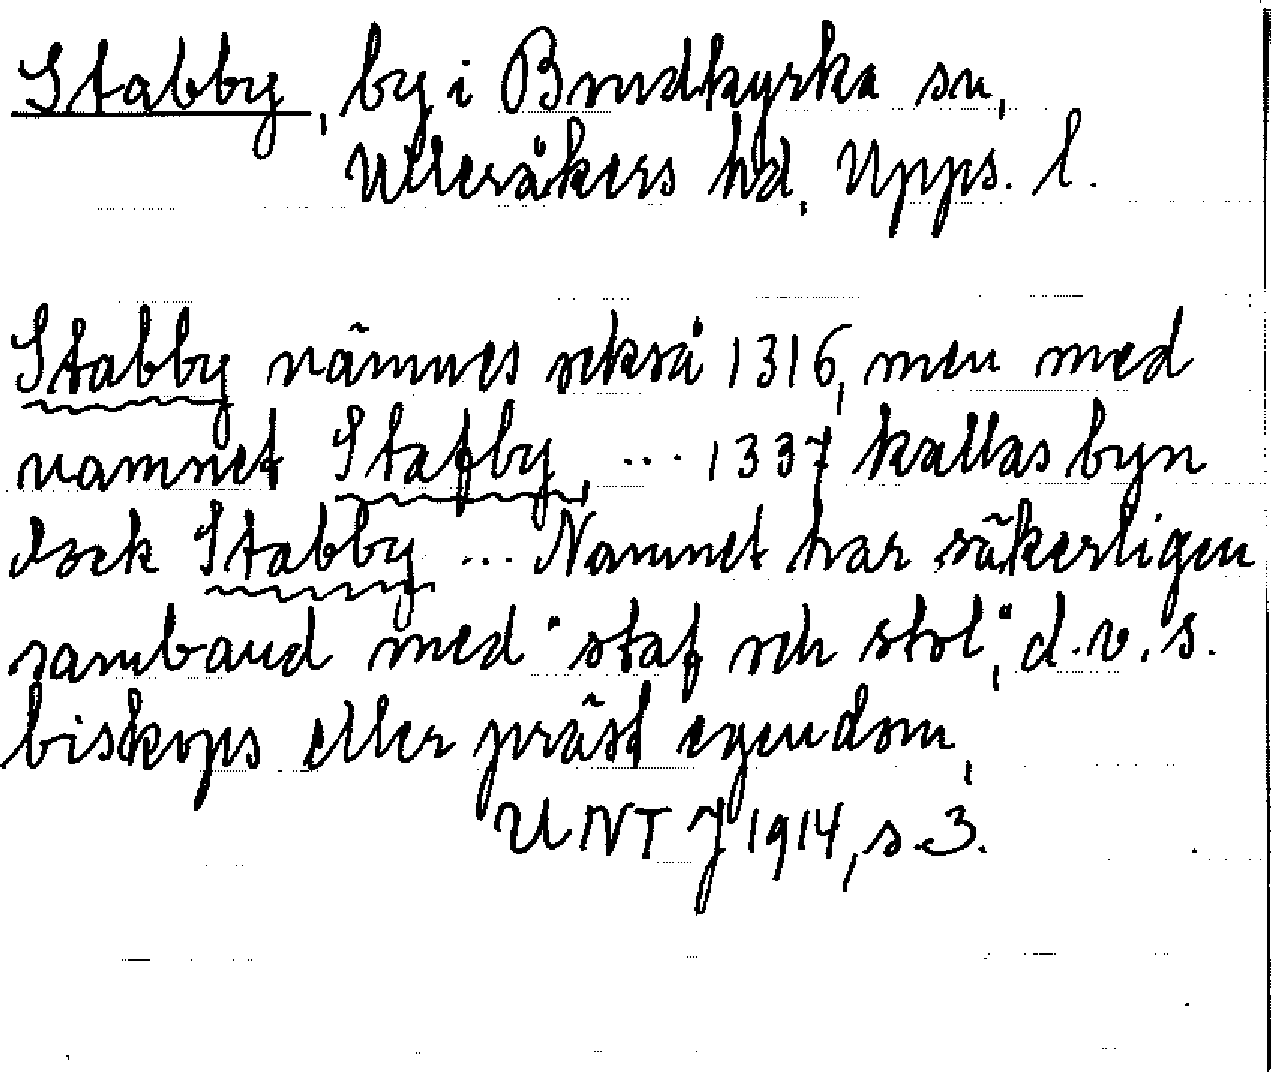 Stabby, by i Bondkyrka sn,
Ulleråkers hd, Upps. l.
Stabby nämnes också 1316, men med
namnet Stafby, ... 1337 kallas byn
dock Stabby ... Namnet har säkerligen
samband med "staf och stol", d.v.s.
biskops eller präst egendom,
UNT J 1914, s. 3.